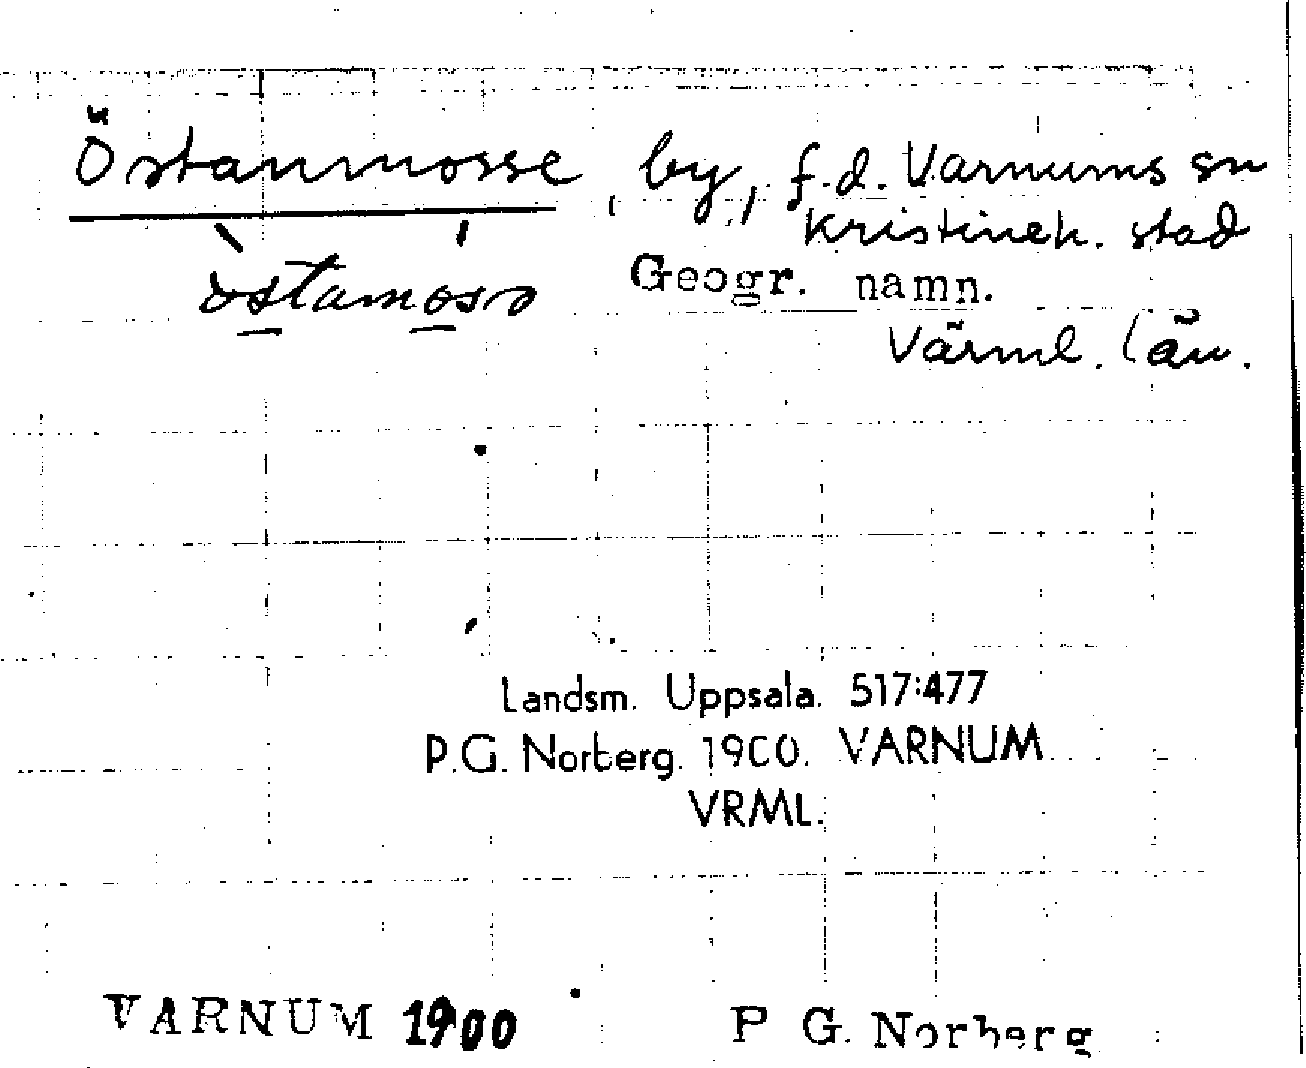 Östanmosse, by, f.d. Varnums sn
Kristineh. stad
östamoss
Geogr. namn.
Värml. län.
Landsm. Uppsala. 517:477
P.G. Norberg. 1900. VARNUM
VRML.
VARNUM 1900 P G. Norberg